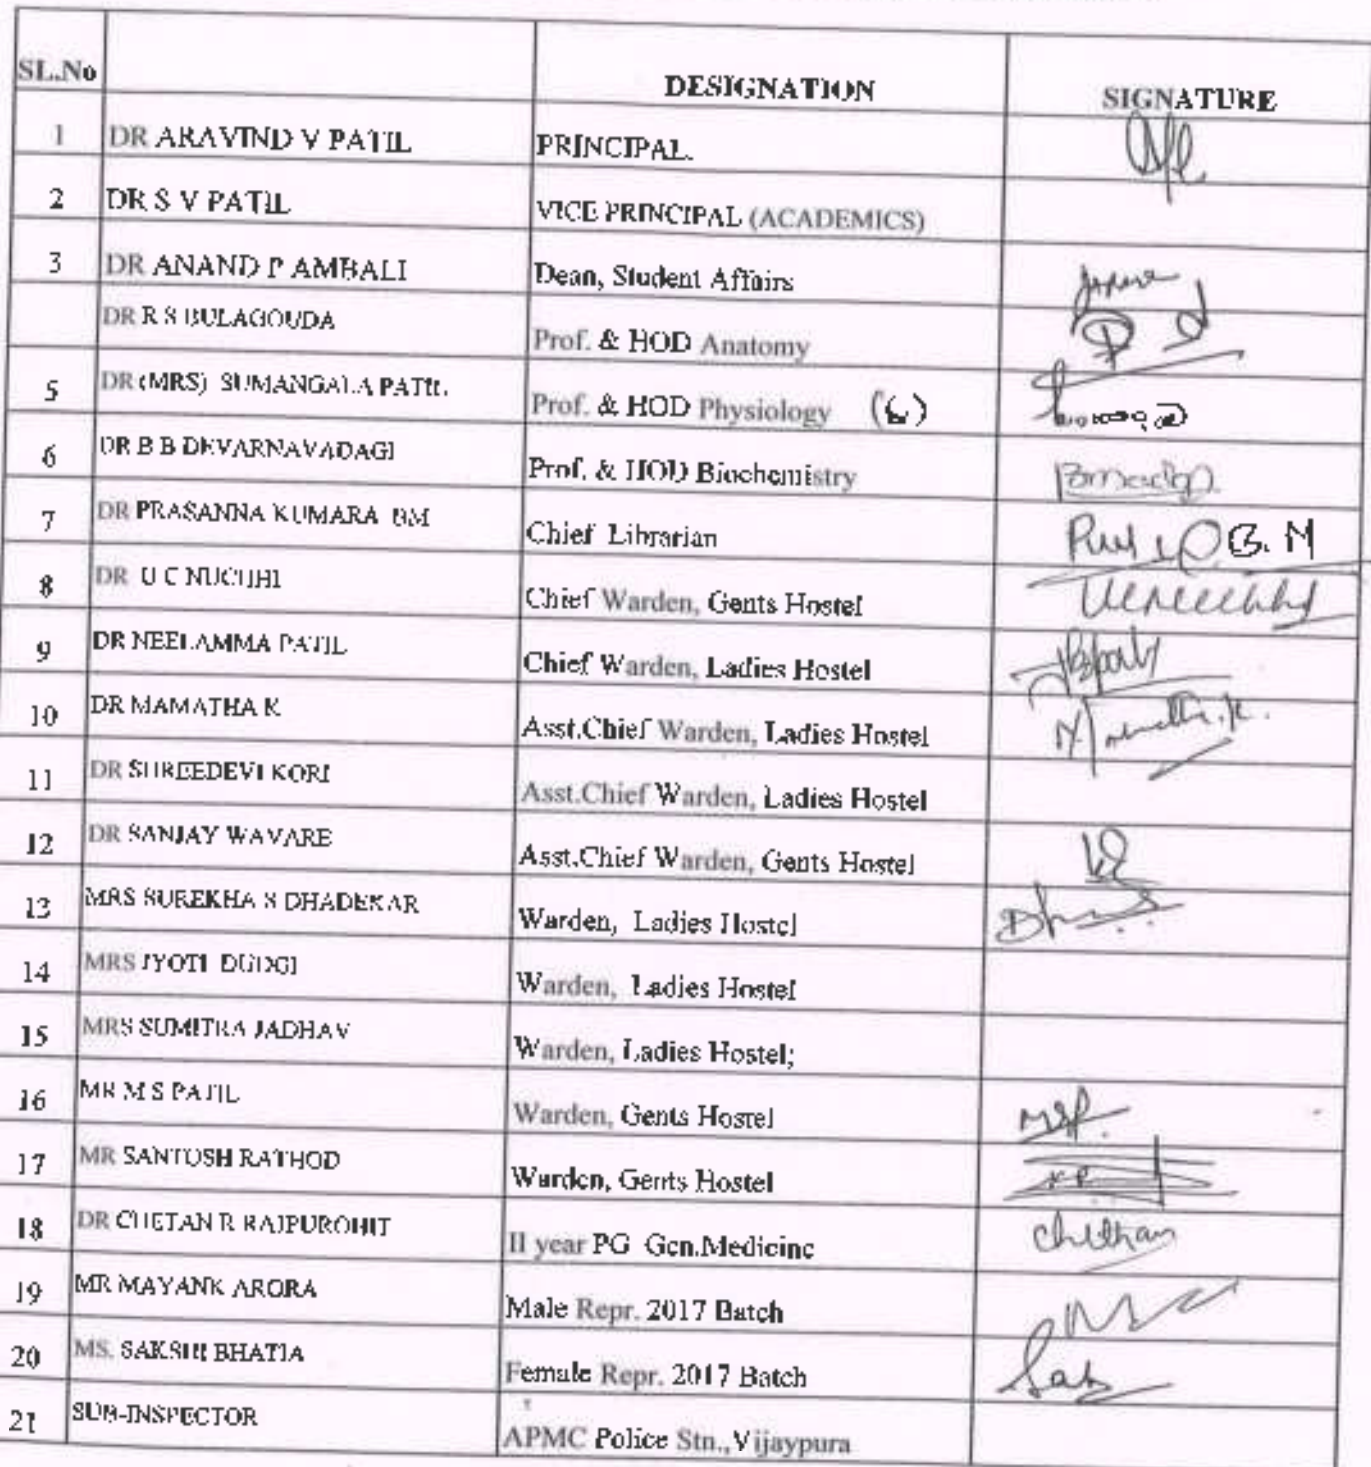 SL.No DESIGNATION SIGNATURE
1 DR ARAVIND V PATIL PRINCIPAL.
2 DR S V PATIL VICE PRINCIPAL (ACADEMICS)
3 DR ANAND P AMBALI Dean, Student Affairs
DR R S BULAGOUDA Prof. & HOD Anatomy
5 DR (MRS) SUMANGALA PATIL Prof. & HOD Physiology
6 DR B B DEVARNAVADAGI Prof. & HOD Biochemistry
7 DR PRASANNA KUMARA BM Chief Librarian B.M
8 DR U C NUCHHI Chief Warden, Gents Hostel
9 DR NEELAMMA PATIL Chief Warden, Ladies Hostel
10 DR MAMATHA K Asst.Chief Warden, Ladies Hostel
11 DR SHREEDEVI KORI Asst.Chief Warden, Ladies Hostel
12 DR SANJAY WAVARE Asst.Chief Warden, Gents Hostel
13 MRS SUREKHA S DHADEKAR Warden, Ladies Hostel
14 MRS JYOTI DUDGI Warden, Ladies Hostel
15 MRS SUMITRA JADHAV Warden, Ladies Hostel;
16 MR M S PATIL Warden, Gents Hostel MSP.
17 MR SANTOSH RATHOD Warden, Gents Hostel
18 DR CHETAN R RAJPUROHIT II year PG Gen.Medicine Chethan
19 MR MAYANK ARORA Male Repr. 2017 Batch
20 MS. SAKSHI BHATIA Female Repr. 2017 Batch
21 SUB-INSPECTOR APMC Police Stn., Vijaypura